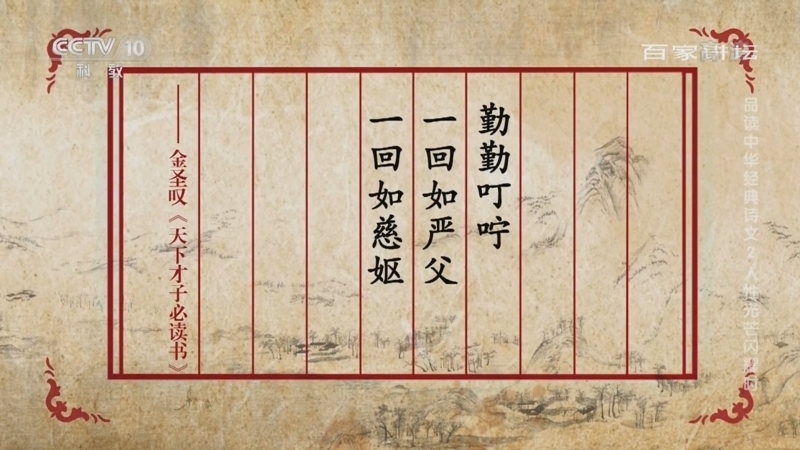 CCTV 10
科 教
百家讲坛
勤勤叮咛
一回如严父
一回如慈妪
——金圣叹《天下才子必读书》
品读中华经典诗文